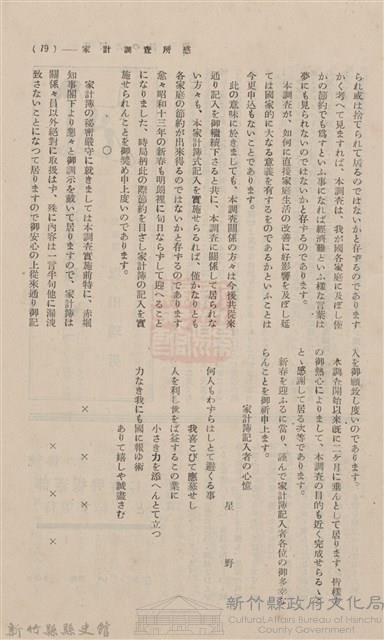 感所査調計家——(19)
られ或は捨てられて居るのではないかと存ずるのであります。
かく考へて見ますれば、本調査は、我が國各家庭に及ぼし僅
かの節約でも爲すといふ事になれば經濟難といふ樣な言葉は
夢にも見られないのではないかと存ずるのであります。
本調査が、如何に直接家庭生活の改善に好影響を及ぼし延
ては國家的に大なる意義を有するものであるかといふことは
今更申込もないことであります。
此の意味に於きましても、本調査關係の方々は今後共從來
通り記入を御繼續下さると共に、本調査に關係して居られな
い方々も、本家計簿式記入を實施せらるれば、僅かなりとも
各家庭の節約が出來得るのではないかと存ずるのであります
愈々昭和十三年の新春も明朗裡に旬日ならずして迎へること
になりました、時局柄此の際節約を目ざし家計簿の記入を實
施せられんことを御奬め申上度いのであります。
○
家計簿の秘密嚴守に就きましては本調査實施前特に、赤堀
知事閣下より懇々と御訓示を戴いて居りますので、家計簿は
關係々員以外絕對に取扱はず、殊に内容は一言半句他に漏洩
致さないことになつて居りますので御安心の上從來通り御記
入を御願致し度いのであります。
本調査開始以來既に二ケ月に垂んとして居ります、皆樣
の御熱心によりまして、本調査の目的も近く完成せらるゝ
とゝ感謝して居る次第であります。
新春を迎ふるに當り、謹んで家計簿記入者各位の御多幸
らんことを御祈申上ます。
家計簿記入者の心憶
星野
何人もわずらはしとて避くる事
我喜こびて應慈せし
人を利し世をば益するこの業に
小さき力を添へんとて立つ
力なき我にも國に報ゆ術
ありて嬉しや誠盡さむ
× × × × ×
新竹縣縣史館
新竹縣政府文化局
Cultural Affairs Bureau of Hsinchu
County Government